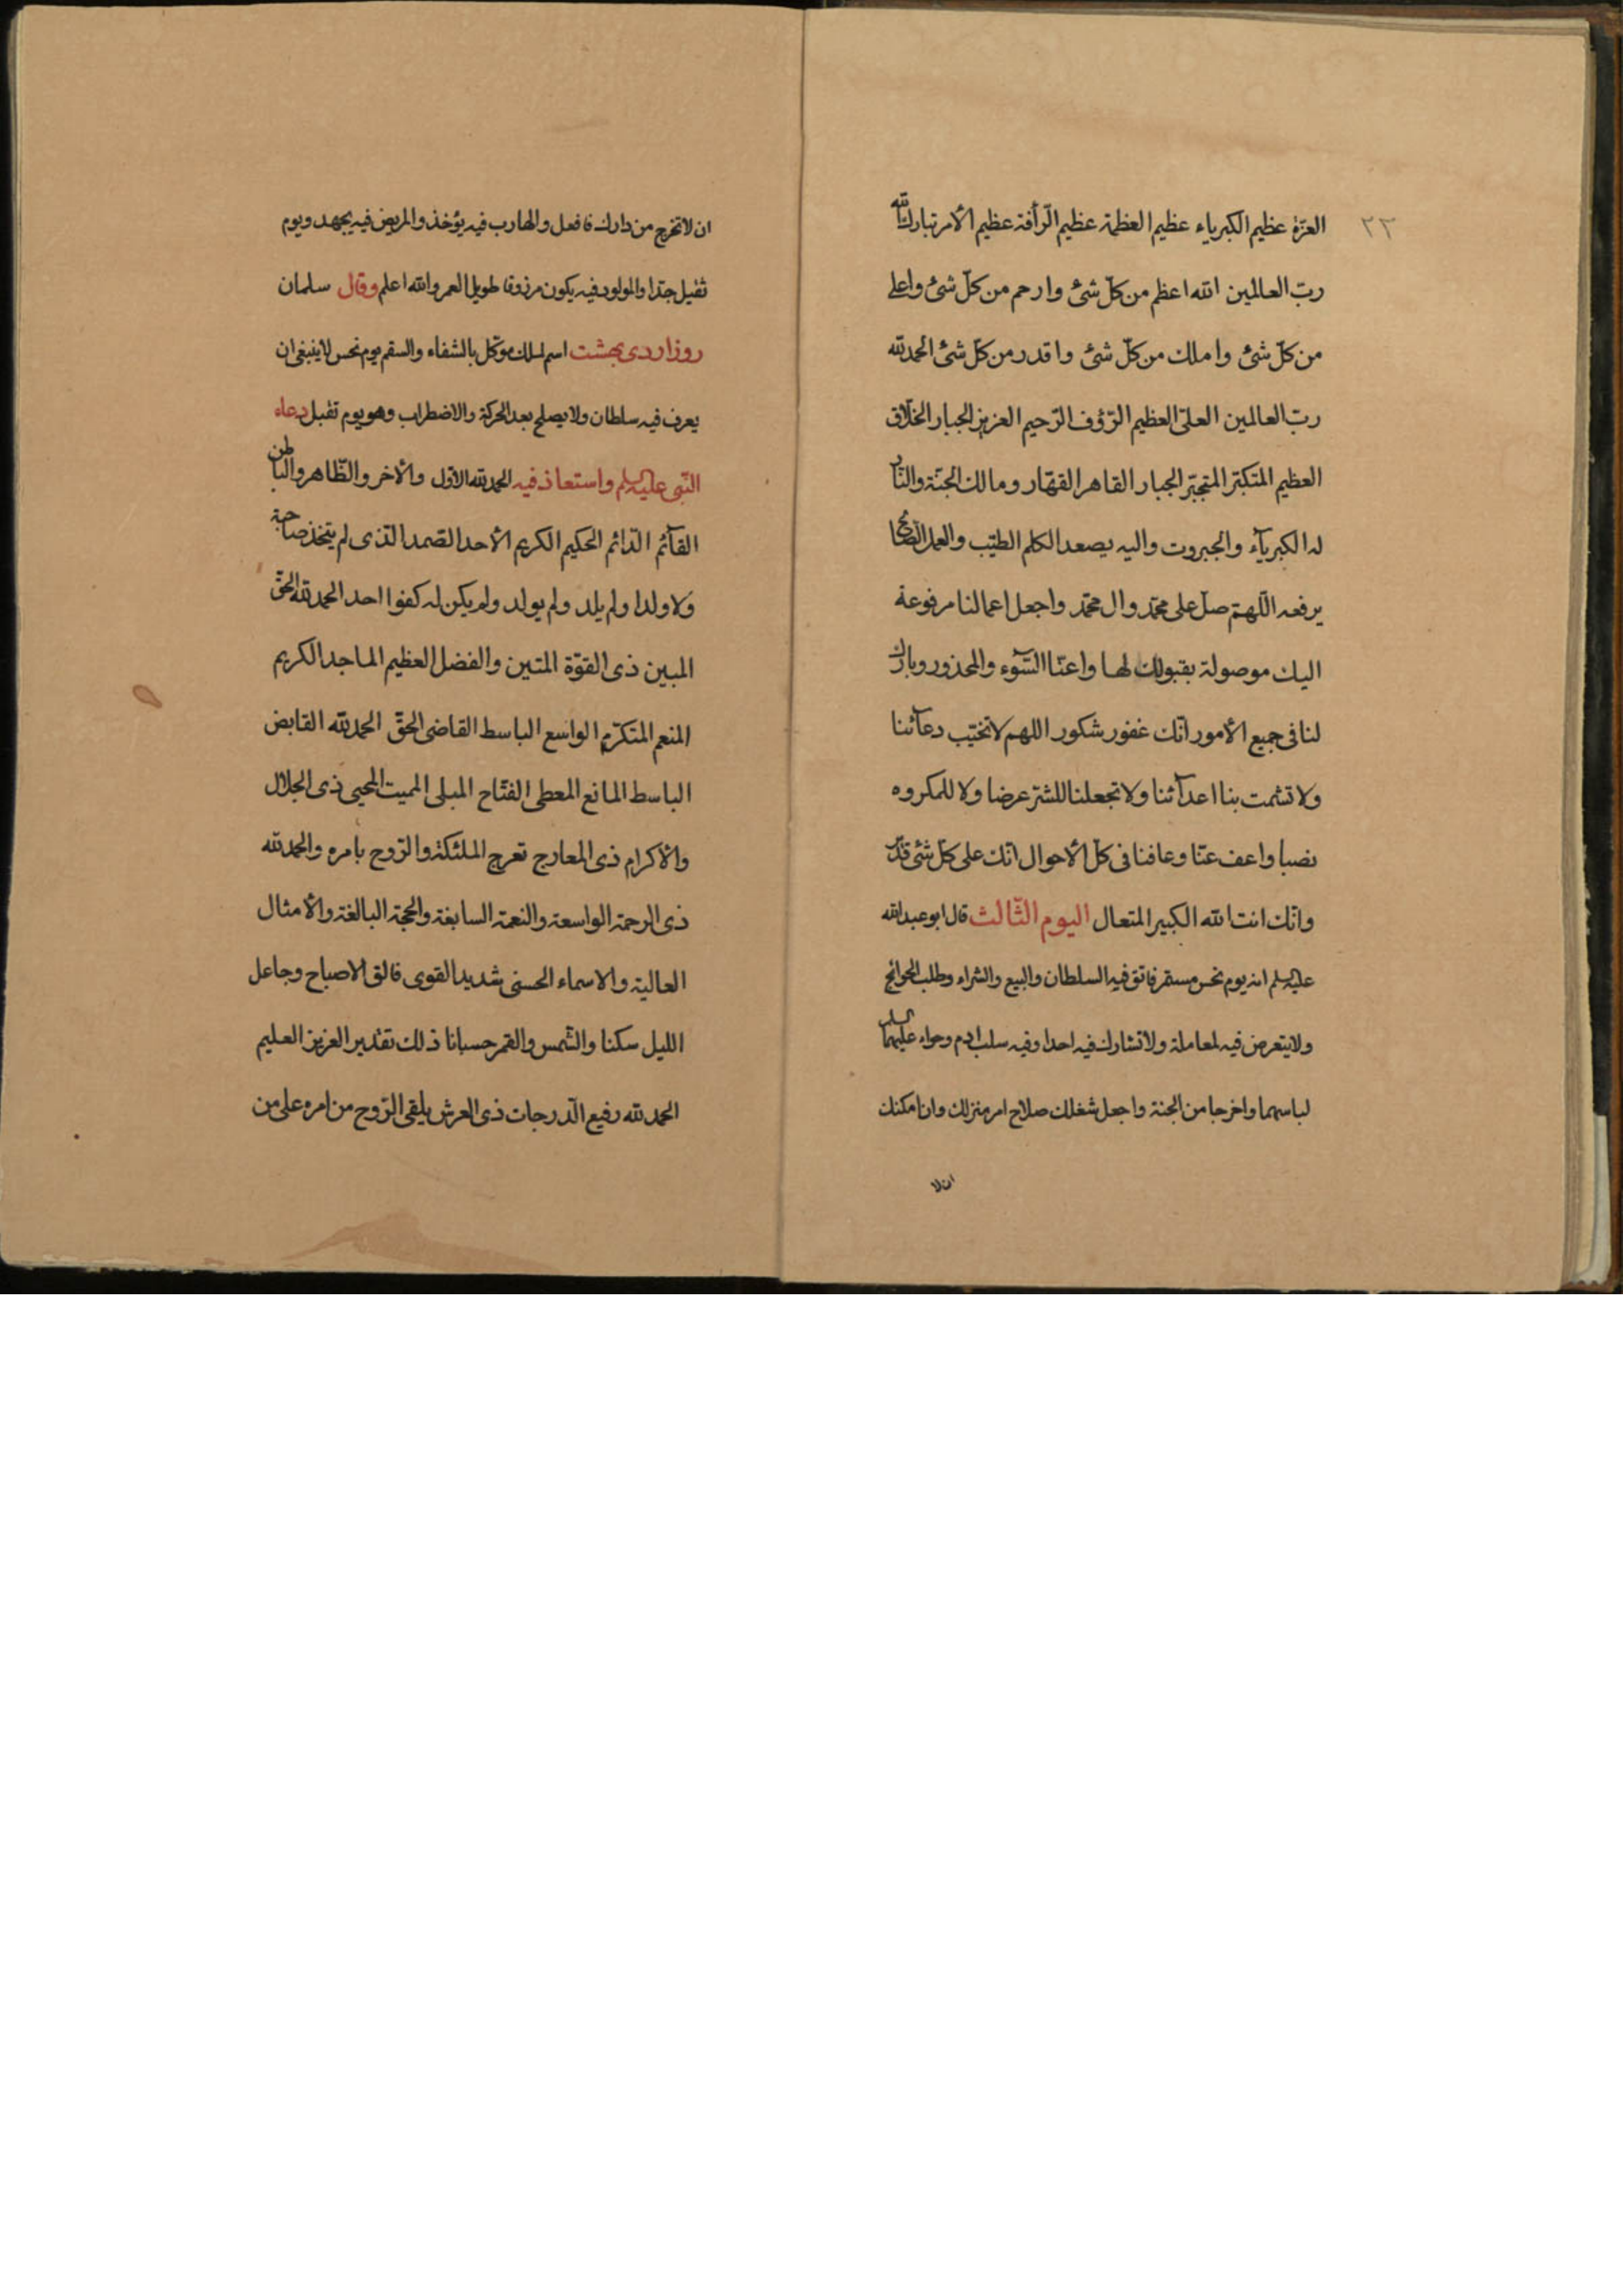 ٢٣
العزّة عظيم الكبرياء عظيم العظمة عظيم الرّأفة عظيم الأمر تبارك الله
ربّ العالمين الله اعظم من كلّ شئ وارحم من كلّ شئ واعلى
من كلّ شئ واملك من كلّ شئ واقدر من كلّ شئ الحمد لله
ربّ العالمين العلىّ العظيم الرّؤف الرّحيم العزيز الجبار الخلّاق
العظيم المتكبّر المتجبّر الجبار القاهر القهّار ومالك الجنّة والنّار
له الكبريآء والجبروت واليه يصعد الكلم الطيّب والعمل الصّالح
يرفعه اللّهمّ صلّ على محمّد وال محمّد واجعل اعمالنا مرفوعة
اليك موصولة بقبولك لها واعنّا السّوء والمحذور وبارك
لنا فى جميع الأمور انّك غفور شكور اللهم لا تخيّب دعآئنا
ولا تشمت بنا اعدآئنا ولا تجعلنا للشر عرضا ولا للمكروه
نصبا واعف عنّا وعافنا فى كلّ الأحوال انّك على كلّ شئ قدير
وانّك انت الله الكبير المتعال اليوم الثّالث قال ابو عبد الله
عليه السلم انه يوم نحس مستمر فاتق فيه السلطان والبيع والشراء وطلب الحوائج
ولا يتعرض فيه لمعاملة ولا تشارك فيه احدا وفيه سلب ادم وحواء عليهما السلم
لباسهما واخرجا من الجنة واجعل شغلك صلاح امر منزلك وان امكنك
ان لا
ان لا تخرج من دارك فافعل والهارب فيه يؤخذ والمريض فيه يجهد ويوم
ثقيل جدا والمولود فيه يكون مرزوقا طويل العمر والله اعلم وقال سلمان
روز اردى بهشت اسم لملك موكّل بالشفاء والسقم يوم نحس لا ينبغى ان
يعرف فيه سلطان ولا يصلح بعد الحركة والاضطراب وهو يوم ثقيل دعاء
النّبى عليه السلم واستعاذ فيه الحمد لله الاوّل والأخر والظّاهر والباطن
القآئم الدّائم الحكيم الكريم الأحد الصّمد الّذى لم يتّخذ صاحبة
ولا ولدا ولم يلد ولم يولد ولم يكن له كفوا احد الحمد لله الحقّ
المبين ذى القوّة المتين والفضل العظيم الماجد الكريم
المنعم المتكرّم الواسع الباسط القاضى الحقّ الحمد لله القابض
الباسط المانع المعطى الفتّاح المبلى المميت المحيى ذى الجلال
والأكرام ذى المعارج تعرج الملئكة والرّوح بامره والحمد لله
ذى الرحمة الواسعة والنعمة السابغة والحجة البالغة والأمثال
العالية والاسماء الحسنى شديد القوى فالق الاصباح وجاعل
الليل سكنا والشّمس والقمر حسبانا ذلك تقدير العزيز العليم
الحمد لله رفيع الدّرجات ذى العرش يلقى الرّوح من امره على من